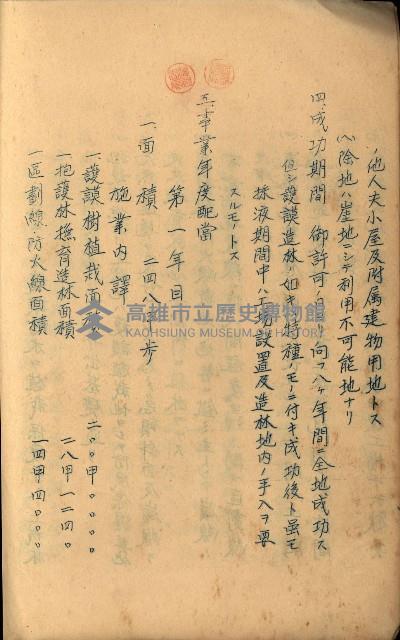 ノ他人夫小屋及附属建物用地トス
(ハ)除地ハ崖地ニシテ利用不可能地ナリ
四、成功期間 御許可ノ日ヨリ向フ八ヶ年間ニ全地成功ス
但シ護謨造林ノ如キ特種ノモノニ付キ成功後ト雖モ
採液期間中ハ工場設置及造林地内ノ手入ヲ要
スルモノトス
五、事業年度配當
第一年目
一、面積 二四八 歩
施業内譯
一、護謨樹植栽面積 二〇〇甲〇〇〇〇
一、抱護林撫育造林面積 二八甲一二四〇
一、區劃線防火線面積 一四甲四〇〇〇
高雄市立歷史博物館
KAOHSIUNG MUSEUM OF HISTORY